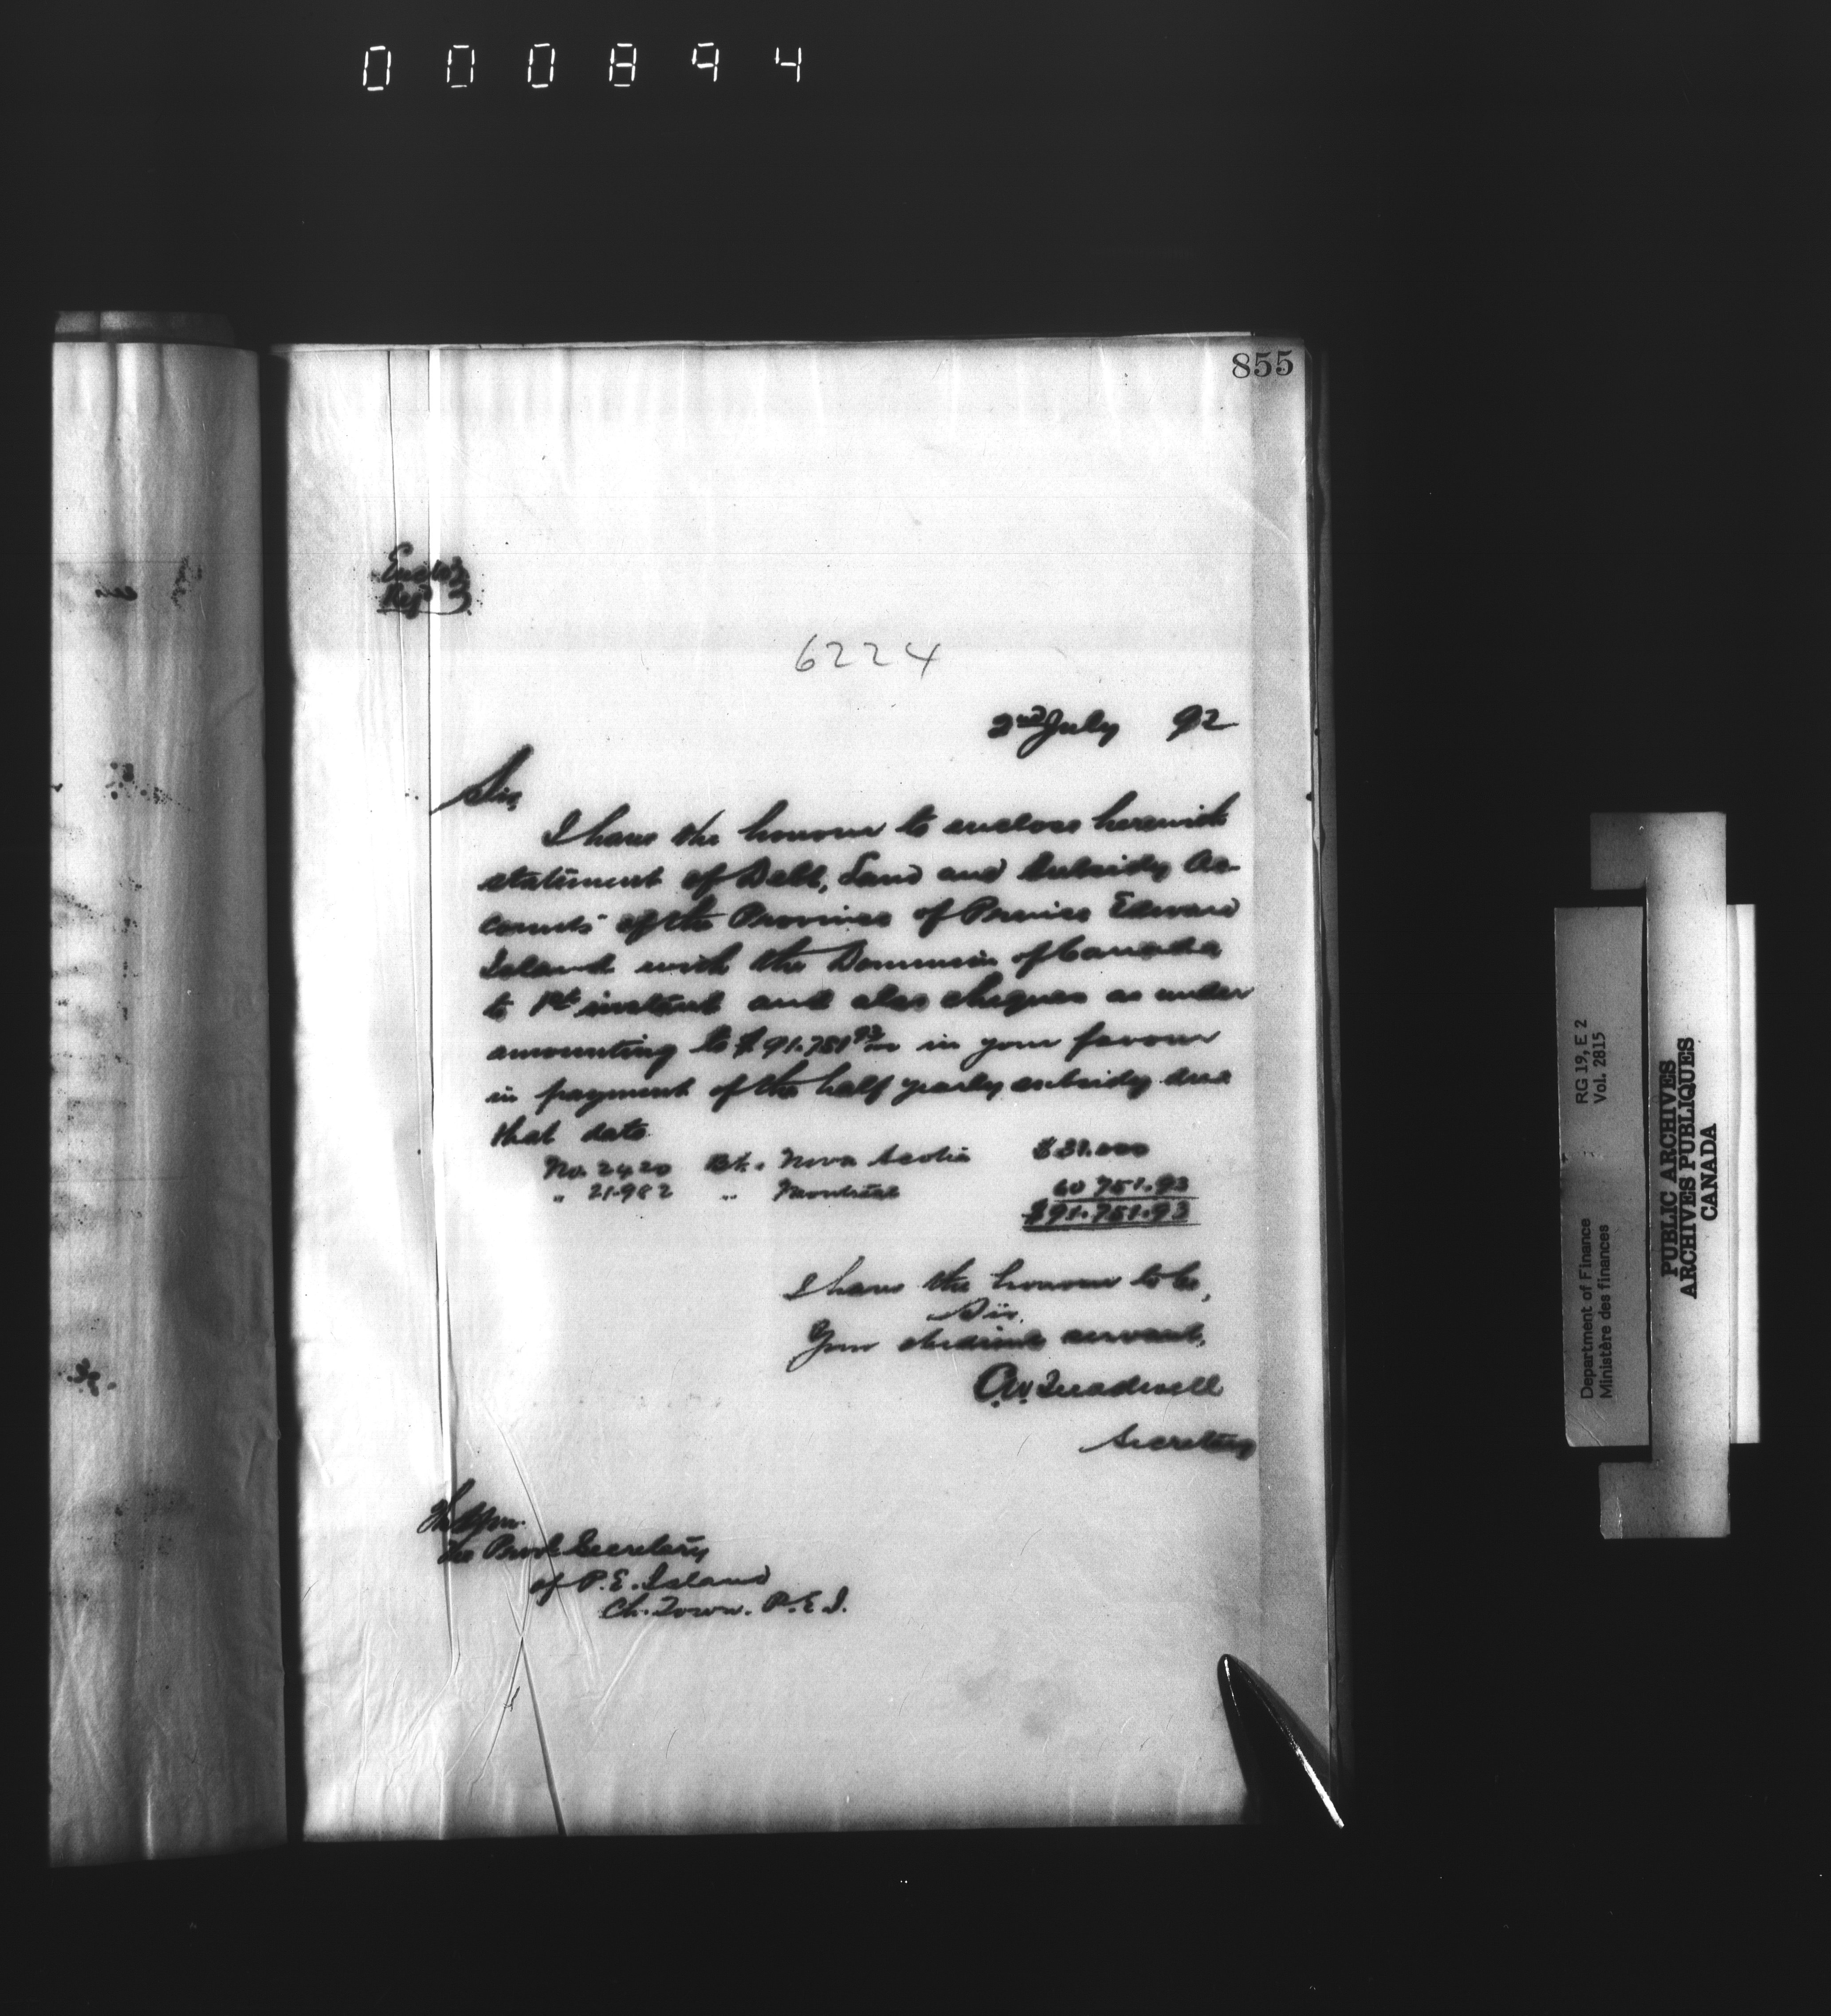 000894
855
Encl.
Regd
6224
2nd July 92
Sir,
I have the honour to enclose herewith
statement of Debt, Land and Subsidy Ac-
counts of the Province of Prince Edward
Island with the Dominion of Canada
to 1st instant and also cheques as under
amounting to $91.751 93/100 in your favour
in payment of the half yearly subsidy due
that date.
No. 2420 Bk. Nova Scotia $31.000
" 21.982 " Montreal 60 751.93
$91.751.93
I have the honour to be,
Sir,
Your obedient servant,
Treadwell
Secretary
The Hon.
the Prov. Secretary
of P.E. Island
Ch. Town. P.E.I.
Department of Finance RG 19, E 2
Ministère des finances Vol. 2815
PUBLIC ARCHIVES
ARCHIVES PUBLIQUES
CANADA